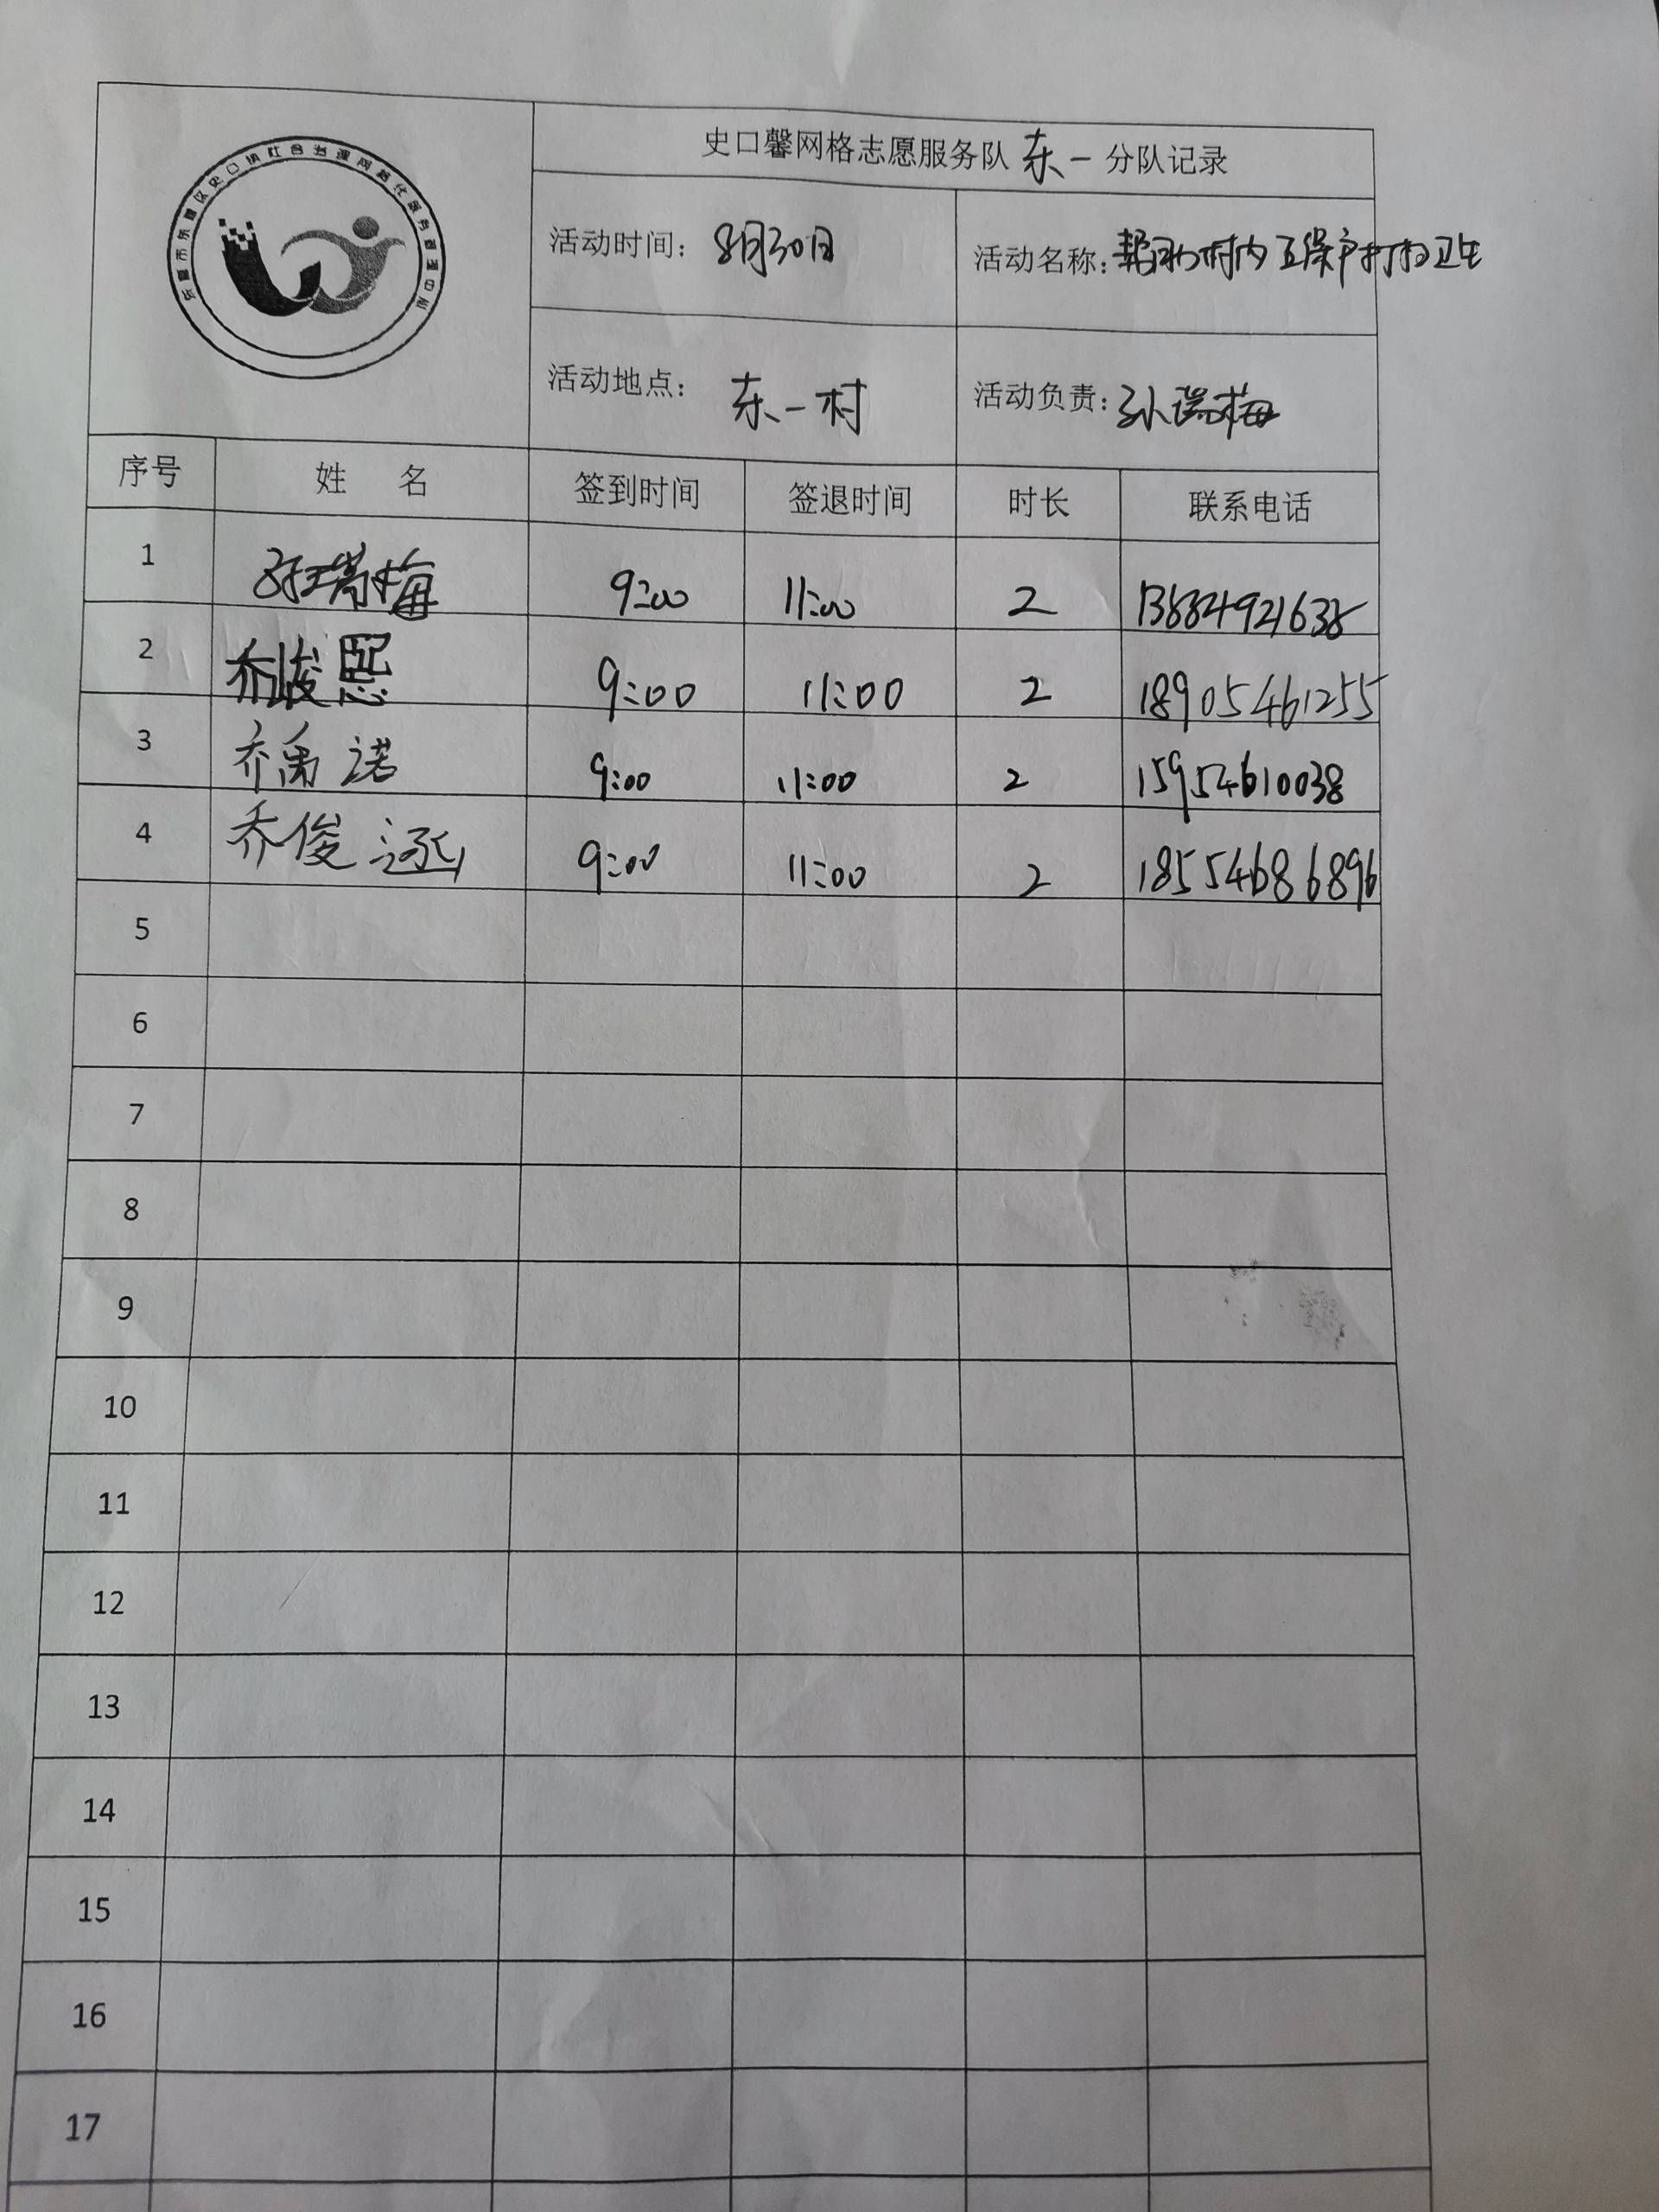 东营市东营区史口镇社会治理网格化服务管理中心
史口馨网格志愿服务队东一分队记录
活动时间：8月30日
活动名称：帮助村内五保户打扫卫生
活动地点：东一村
活动负责：孙瑞梅
序号 姓 名 签到时间 签退时间 时长 联系电话
1 孙瑞梅 9:00 11:00 2
2 乔峻熙 9:00 11:00 2 18905461255
3 乔禹诺 9:00 11:00 2 15954610038
4 乔俊 9:00 11:00 2 18554686896
5
6
7
8
9
10
11
12
13
14
15
16
17